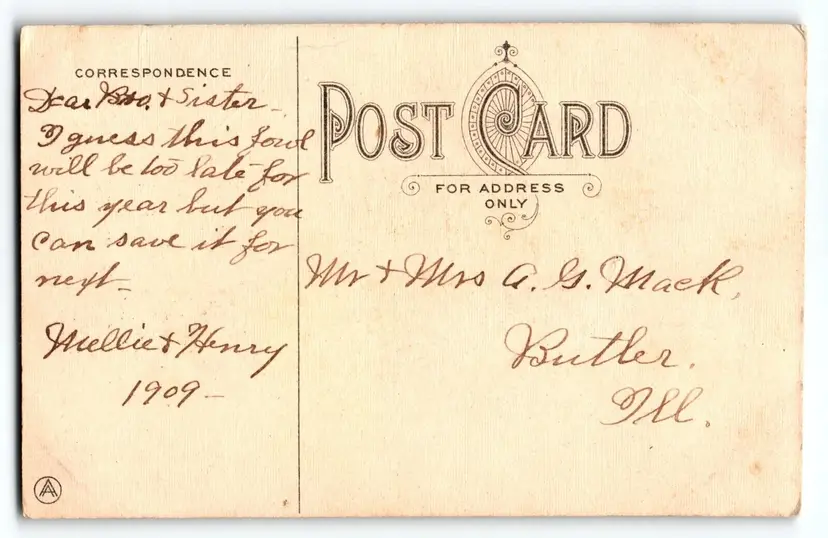 CORRESPONDENCE
Dear Bro. & Sister -
I guess this fowl
will be too late for
this year but you
can save it for
next -
Mellie & Henry
1909 -
POST CARD
FOR ADDRESS
ONLY
Mr & Mrs A. G. Mack,
Butler.
Ill.